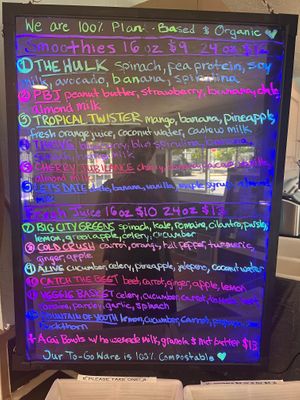 We are 100% Plant-Based & Organic
Smoothies 16 oz $9 24 oz $12
① THE HULK spinach, pea protein, soy
milk, avocado, banana, spirulina
② PBJ peanut butter, strawberry, banana,
almond milk
③ TROPICAL TWISTER mango, banana, pineapple,
fresh orange juice, coconut water, cashew milk
blueberry, blue spirulina, banana,
milk
⑤ CHERRY
almond milk
LETS DATE banana, vanilla, syrup, almond
milk
Fresh Juice 16 oz $10 24 oz
⑦ BIG CITY GREENS spinach, kale, romaine, cilantro, parsley,
lemon, green apple, celery, cucumber
COLD CRUSH carrot, orange, bell pepper, turmeric,
ginger, apple
⑨ ALIVE cucumber, celery, pineapple, jalepeno, coconut water
CATCH THE BEET beet, carrot, ginger, apple, lemon
VEGGIE BASKET celery, cucumber, carrot, beet
romaine, parsley, garlic, spinach
FOUNTAIN OF YOUTH lemon, cucumber, carrot,
+ Acai Bowls w/ housemade milk, granola & nut butter $13
Our To-Go Ware is 100% Compostable
PLEASE TAKE ONE